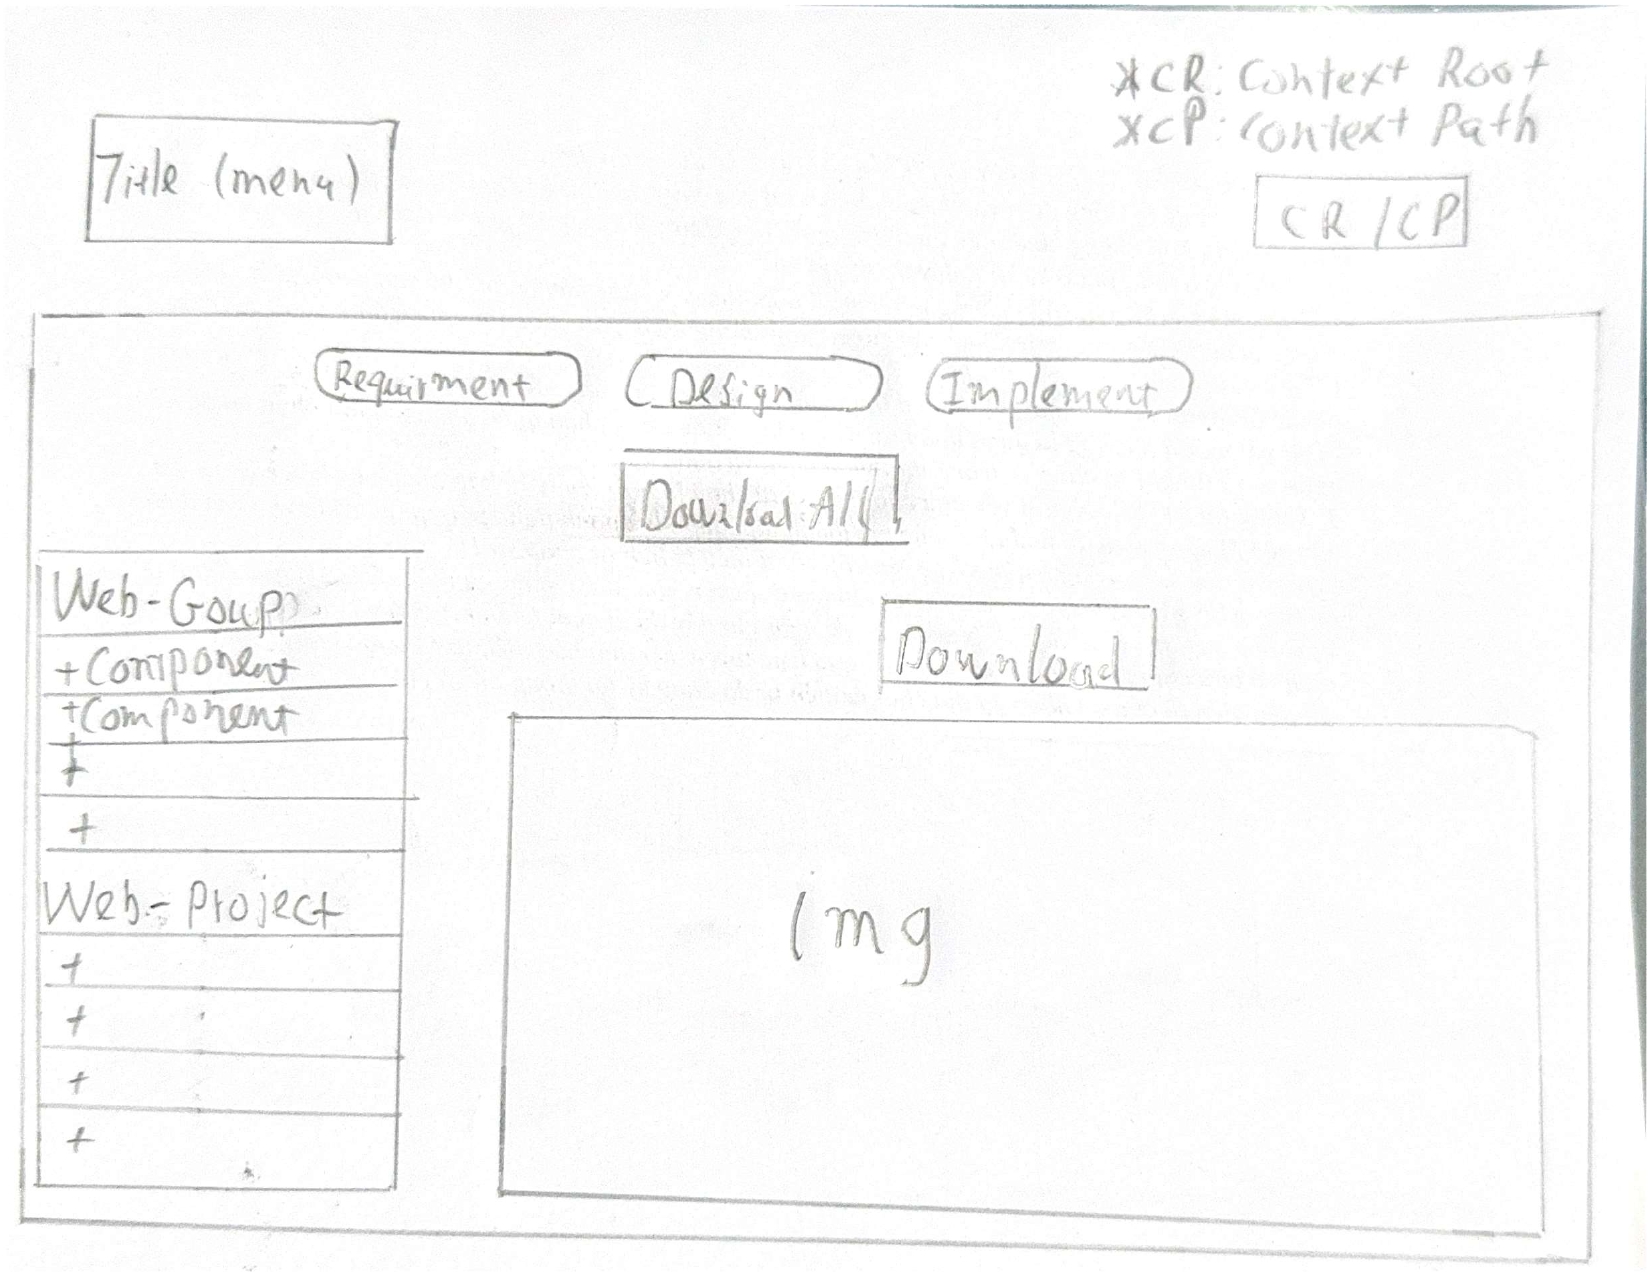 *CR: Context Root
*CP: Context Path
Title (menu)
CR / CP
Requirment
Design
Implement
Download All
Web-Goup
Download
+Component
+Component
+
+
Web-Project
+
+
+
+
img